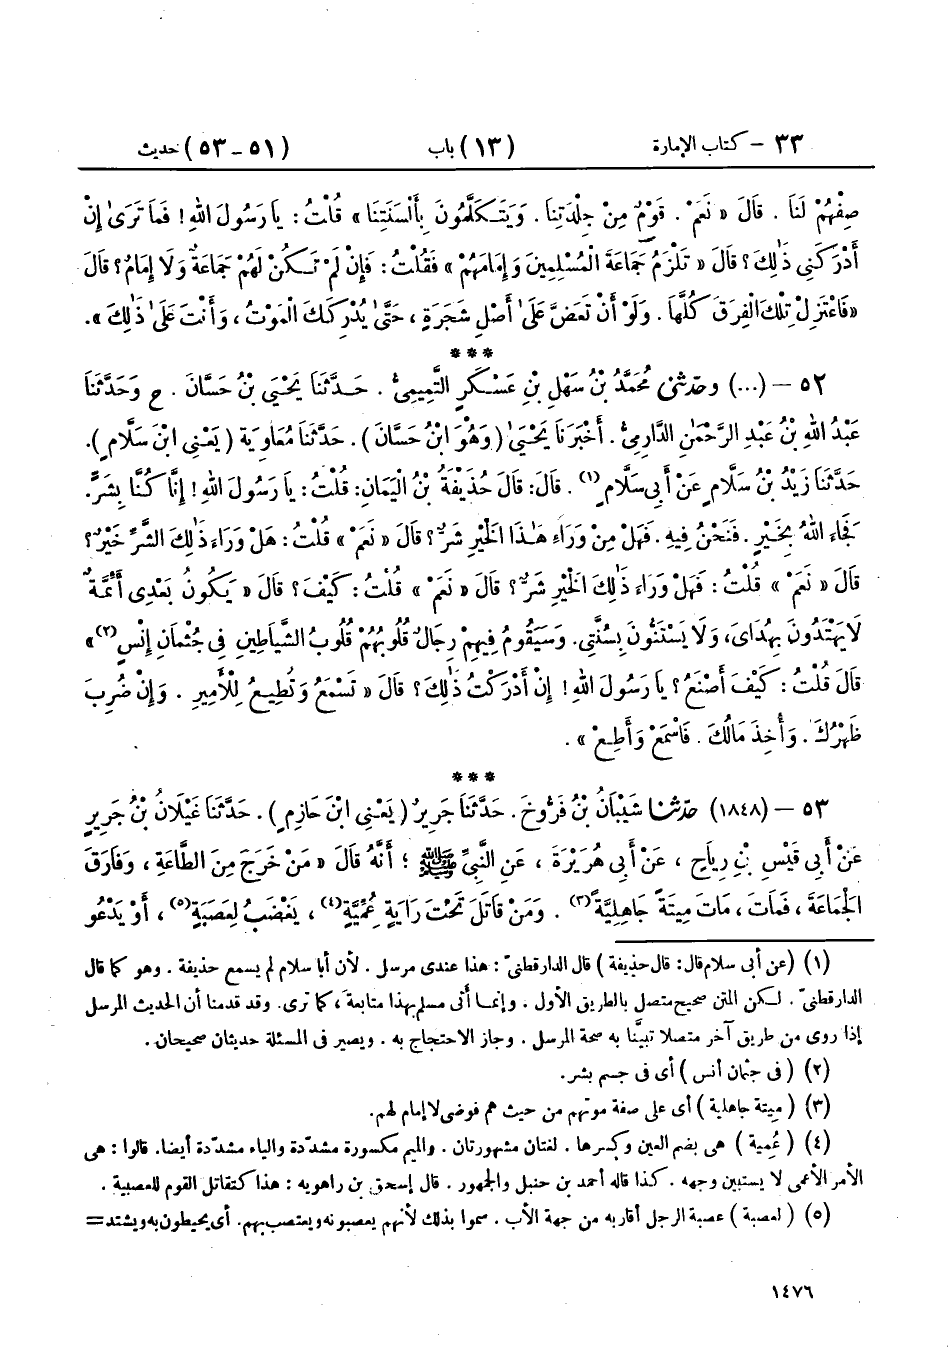 ٣٣ – كتاب الإمارة (١٣) باب (٥١ – ٥٣) حديث
صِفْهُمْ لَنَا . قَالَ « نَعَمْ . قَوْمٌ مِنْ جِلْدَتِنَا . وَيَتَكَلَّمُونَ بِأَلْسِنَتِنَا » قُلْتُ : يَا رَسُولَ اللهِ ! فَمَا تَرَىٰ إِنْ
أَدْرَكَنِي ذَٰلِكَ ؟ قَالَ « تَلْزَمُ جَمَاعَةَ الْمُسْلِمِينَ وَإِمَامَهُمْ » فَقُلْتُ : فَإِنْ لَمْ تَكُنْ لَهُمْ جَمَاعَةٌ وَلَا إِمَامٌ ؟ قَالَ
« فَاعْتَزِلْ تِلْكَ الْفِرَقَ كُلَّهَا . وَلَوْ أَنْ تَعَضَّ عَلَىٰ أَصْلِ شَجَرَةٍ ، حَتَّىٰ يُدْرِكَكَ الْمَوْتُ ، وَأَنْتَ عَلَىٰ ذَٰلِكَ » .
***
٥٢ – (...) وحدثني مُحَمَّدُ بْنُ سَهْلِ بْنِ عَسْكَرٍ التَّمِيمِيُّ . حَدَّثَنَا يَحْيَىٰ بْنُ حَسَّانَ . ح وَحَدَّثَنَا
عَبْدُ اللهِ بْنُ عَبْدِ الرَّحْمَٰنِ الدَّارِمِيُّ . أَخْبَرَنَا يَحْيَىٰ ( وَهُوَ ابْنُ حَسَّانَ ) . حَدَّثَنَا مُعَاوِيَةُ ( يَعْنِي ابْنَ سَلَّامٍ ) .
حَدَّثَنَا زَيْدُ بْنُ سَلَّامٍ عَنْ أَبِي سَلَّامٍ (١) . قَالَ : قَالَ حُذَيْفَةُ بْنُ الْيَمَانِ : قُلْتُ : يَا رَسُولَ اللهِ ! إِنَّا كُنَّا بِشَرٍّ .
فَجَاءَ اللهُ بِخَيْرٍ . فَنَحْنُ فِيهِ . فَهَلْ مِنْ وَرَاءِ هَٰذَا الْخَيْرِ شَرٌّ ؟ قَالَ « نَعَمْ » قُلْتُ : هَلْ وَرَاءَ ذَٰلِكَ الشَّرِّ خَيْرٌ ؟
قَالَ « نَعَمْ » قُلْتُ : فَهَلْ وَرَاءَ ذَٰلِكَ الْخَيْرِ شَرٌّ ؟ قَالَ « نَعَمْ » قُلْتُ : كَيْفَ ؟ قَالَ « يَكُونُ بَعْدِي أَئِمَّةٌ
لَا يَهْتَدُونَ بِهُدَايَ ، وَلَا يَسْتَنُّونَ بِسُنَّتِي . وَسَيَقُومُ فِيهِمْ رِجَالٌ قُلُوبُهُمْ قُلُوبُ الشَّيَاطِينِ فِي جُثْمَانِ إِنْسٍ (٢) »
قَالَ قُلْتُ : كَيْفَ أَصْنَعُ ؟ يَا رَسُولَ اللهِ ! إِنْ أَدْرَكْتُ ذَٰلِكَ ؟ قَالَ « تَسْمَعُ وَتُطِيعُ لِلْأَمِيرِ . وَإِنْ ضُرِبَ
ظَهْرُكَ . وَأُخِذَ مَالُكَ . فَاسْمَعْ وَأَطِعْ » .
***
٥٣ – (١٨٤٨) حدثنا شَيْبَانُ بْنُ فَرُّوخَ . حَدَّثَنَا جَرِيرٌ ( يَعْنِي ابْنَ حَازِمٍ ) . حَدَّثَنَا غَيْلَانُ بْنُ جَرِيرٍ
عَنْ أَبِي قَيْسِ بْنِ رِيَاحٍ ، عَنْ أَبِي هُرَيْرَةَ ، عَنِ النَّبِيِّ ﷺ ؛ أَنَّهُ قَالَ « مَنْ خَرَجَ مِنَ الطَّاعَةِ ، وَفَارَقَ
الْجَمَاعَةَ ، فَمَاتَ ، مَاتَ مِيتَةً جَاهِلِيَّةً (٣) . وَمَنْ قَاتَلَ تَحْتَ رَايَةٍ عُمِّيَّةٍ (٤) ، يَغْضَبُ لِعَصَبَةٍ (٥) ، أَوْ يَدْعُو
(١) (عن أبى سلام قال : قال حذيفة ) قال الدارقطنىّ : هذا عندى مرسل . لأن أبا سلام لم يسمع حذيفة . وهو كما قال
الدارقطنىّ . لكن المتن صحيح متصل بالطريق الأول . وإنما أتى مسلم بهذا متابعة ، كما ترى . وقد قدمنا أن الحديث المرسل
إذا روى من طريق آخر متصلا تبيَّنا به صحة المرسل . وجاز الاحتجاج به . ويصير فى المسئلة حديثان صحيحان .
(٢) ( فى جثمان أنس ) أى فى جسم بشر .
(٣) ( ميتة جاهلية ) أى على صفة موتهم من حيث هم فوضى لا إمام لهم .
(٤) ( عُمِّية ) هى بضم العين وكسرها . لغتان مشهورتان . والميم مكسورة مشدّدة والياء مشدّدة أيضا . قالوا : هى
الأمر الأعمى لا يستبين وجهه . كذا قاله أحمد بن حنبل والجمهور . قال إسحق بن راهويه : هذا كتقاتل القوم للعصبية .
(٥) ( لعصبة ) عصبة الرجل أقاربه من جهة الأب . سموا بذلك لأنهم يعصبونه ويعتصب بهم . أى يحيطون به ويشتد =
١٤٧٦